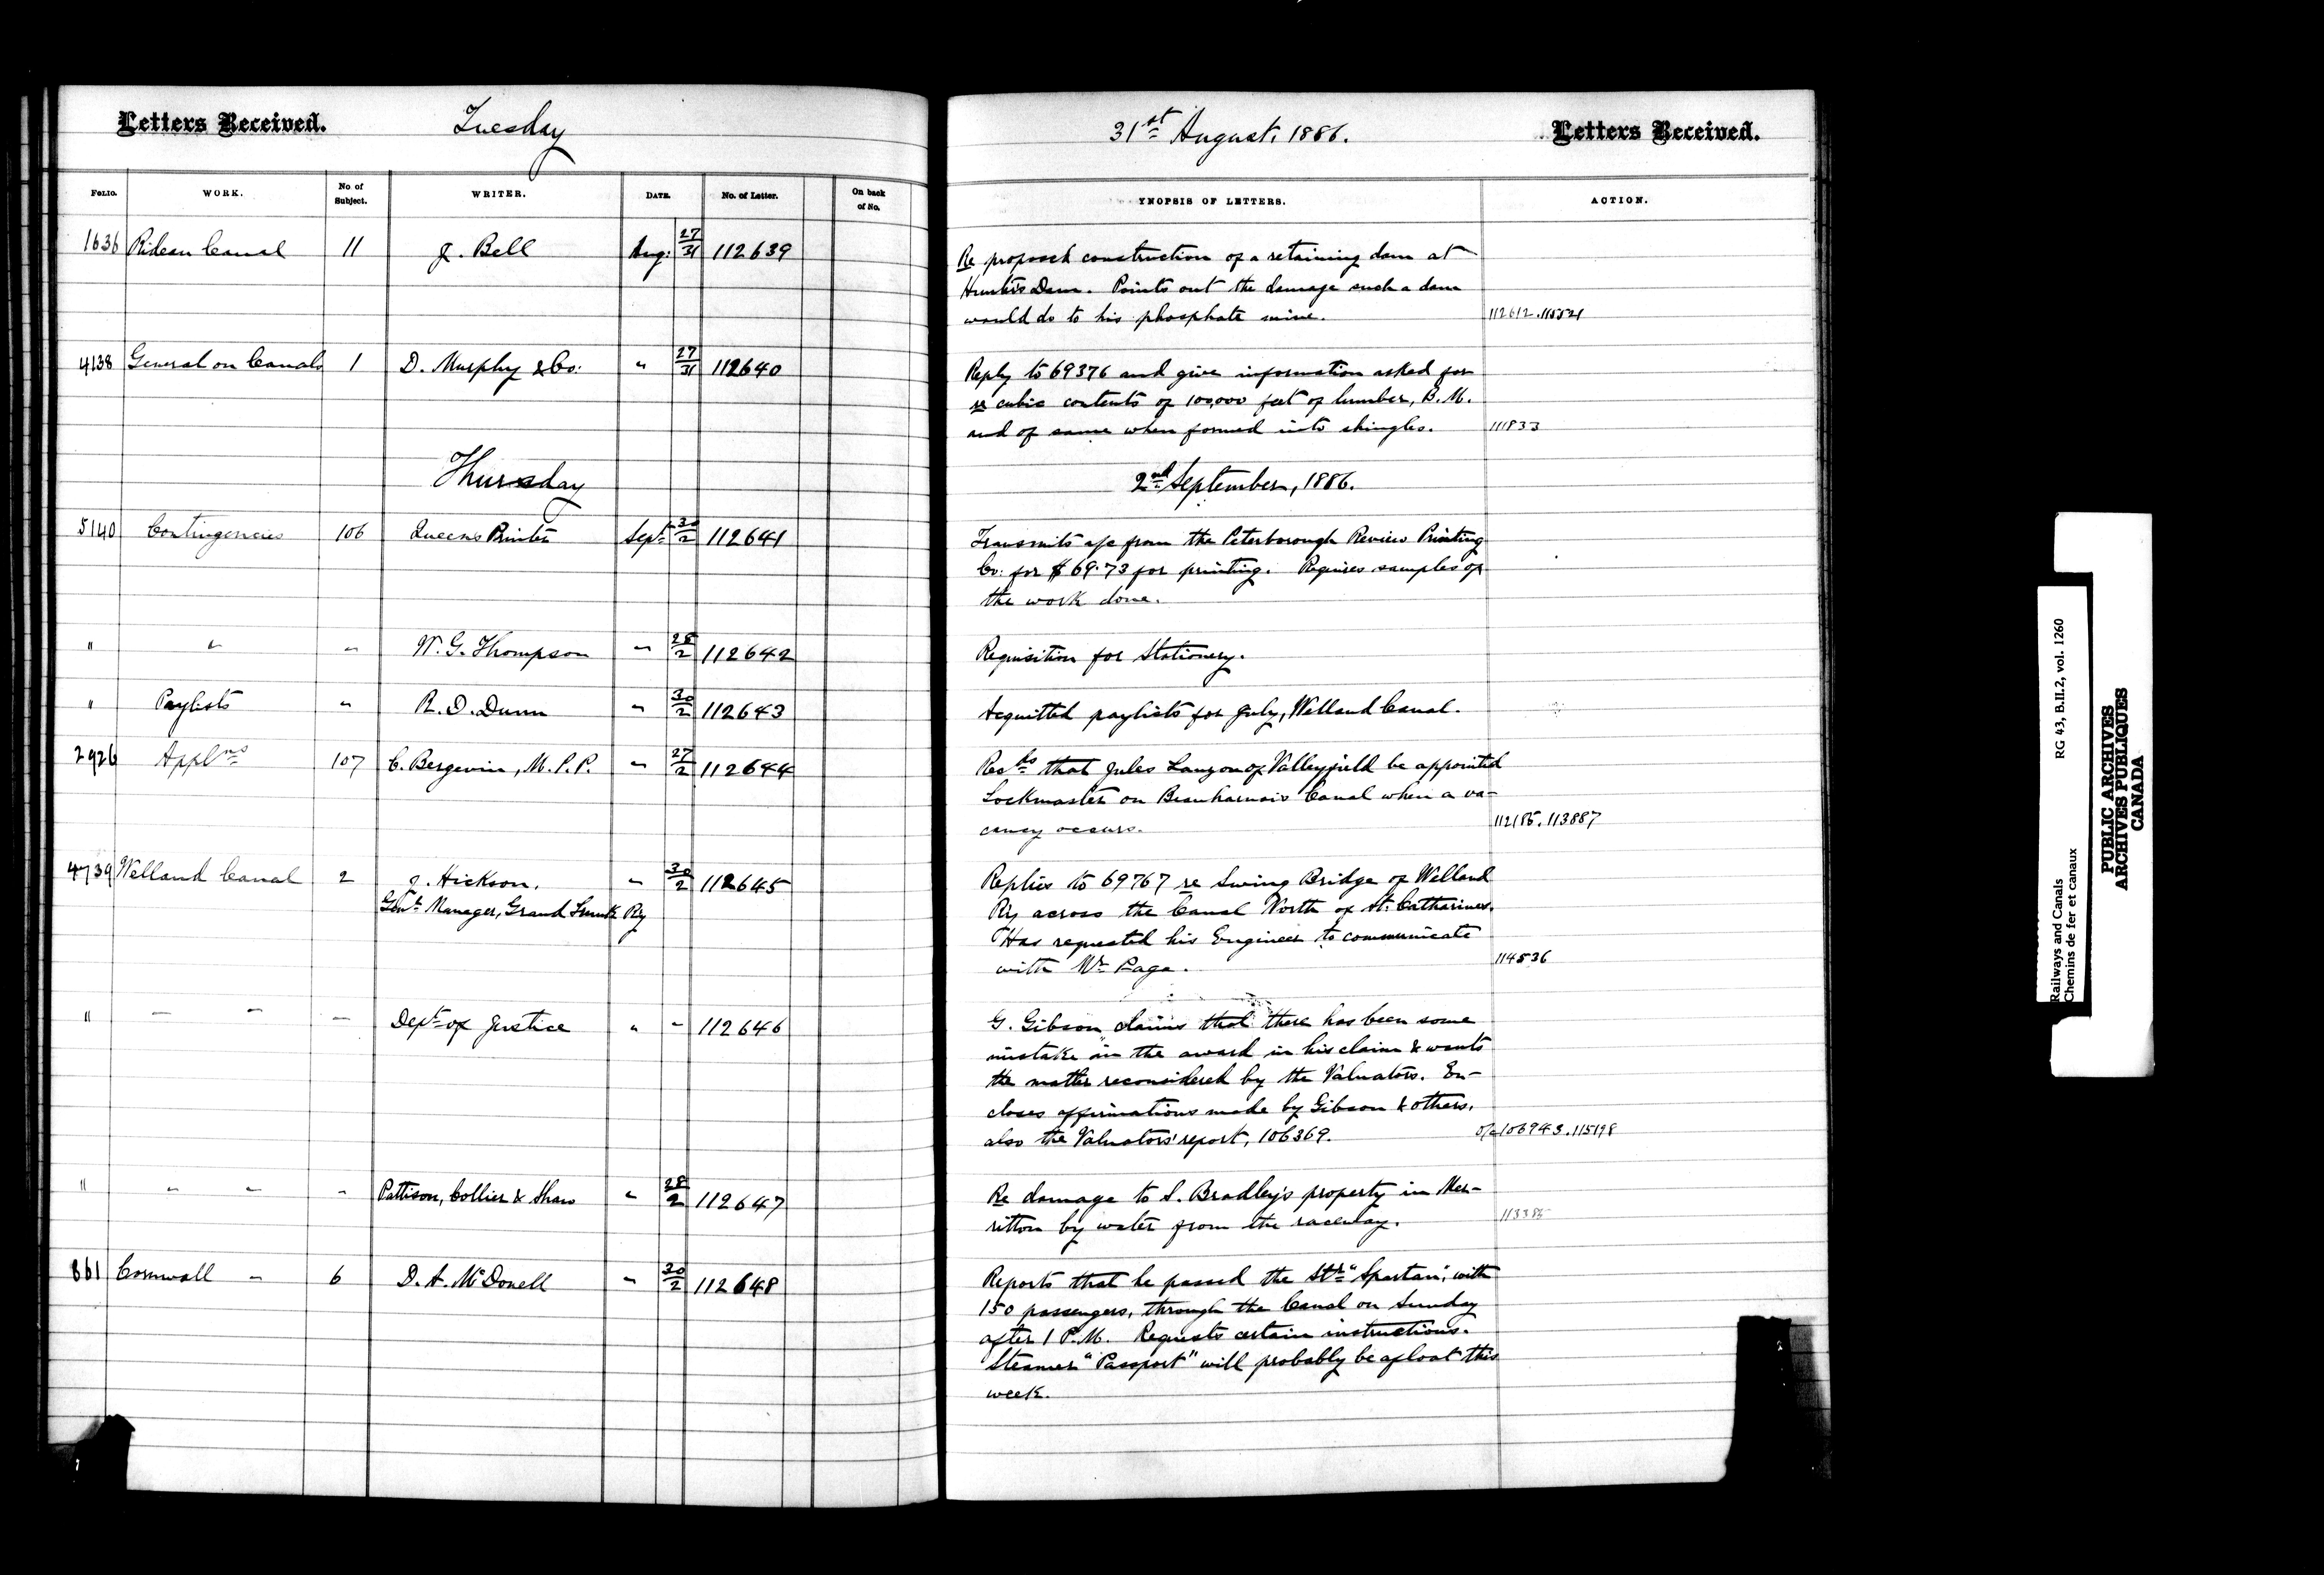 Letters Received.
Tuesday
31st August, 1886.
Letters Received.
FOLIO. WORK. No of Subject. WRITER. DATE. No. of Letter. On back of No.
YNOPSIS OF LETTERS. ACTION.
1636 Rideau Canal 11 J. Bell Aug: 27/31 112639
Re proposed construction of a retaining dam at
Hunter's Dam. Points out the damage such a dam
would do to his phosphate mine. 112612.
4138 General on Canals 1 D. Murphy & Co: " 27/31 112640
Reply to 69376 and give information asked for
re cubic contents of 100,000 feet of lumber, B.M.
and of same when formed into shingles. 111833
Thursday
2nd September, 1886.
5140 Contingencies 106 Queens Printer Sept 30/2 112641
Transmits a/c from the Peterborough Review Printing
Co: for $69.73 for printing. Requires samples of
the work done.
" " " W. G. Thompson " 28/2 112642
Requisition for Stationery.
" Paylists " R. D. Dunn " 30/2 112643
Acquitted paylists for July, Welland Canal.
2926 Applns 107 C. Bergevin, M.P.P. " 27/2 112644
Recds that Jules Lauzon of Valleyfield be appointed
Lockmaster on Beauharnois Canal when a va-
cancy occurs. 112185. 113887
4739 Welland Canal 2 J. Hickson. " 30/2 112645
Genl Manager, Grand Trunk Ry
Replies to 69767 re Swing Bridge of Welland
Ry across the Canal North of St. Catharines.
Has requested his Engineer to communicate
with Mr Page. 114536
" " " " Dept of Justice " " 112646
G. Gibson claims that there has been some
mistake in the award in his claim & wants
the matter reconsidered by the Valuators. En-
closes affirmations made by Gibson & others,
also the Valuators' report, 106369. o/c 106943. 115198
" " " " Pattison, Collier & Shaw " 28/2 112647
Re damage to S. Bradley's property in Mer-
ritton by water from the raceway. 113385
861 Cornwall " 6 D. A. McDonell " 30/2 112648
Reports that he passed the Str "Spartan", with
150 passengers, through the Canal on Sunday
after 1 P.M. Requests certain instructions.
Steamer "Passport" will probably be afloat this
week.
Railways and Canals RG 43, B.II.2, vol. 1260
Chemins de fer et canaux
PUBLIC ARCHIVES
ARCHIVES PUBLIQUES
CANADA